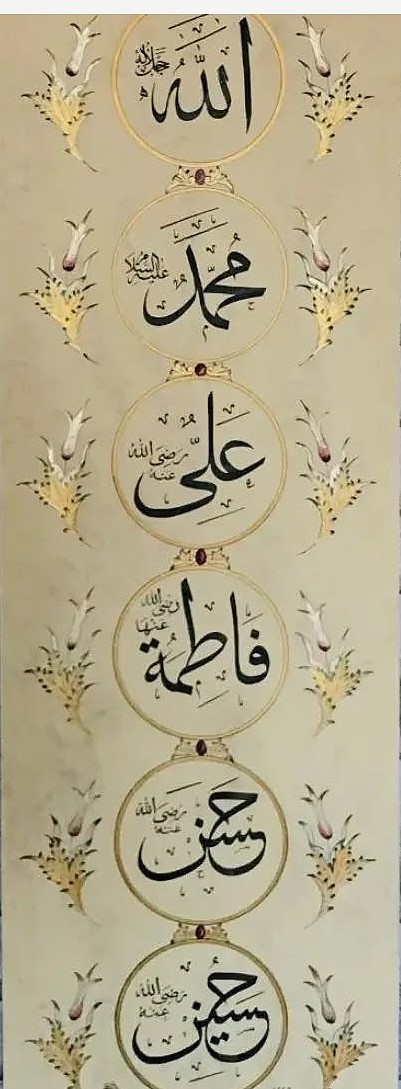 الله جل جلاله
محمد عليه السلام
علي رضي الله عنه
فاطمة رضي الله عنها
حسن رضي الله عنه
حسين رضي الله عنه